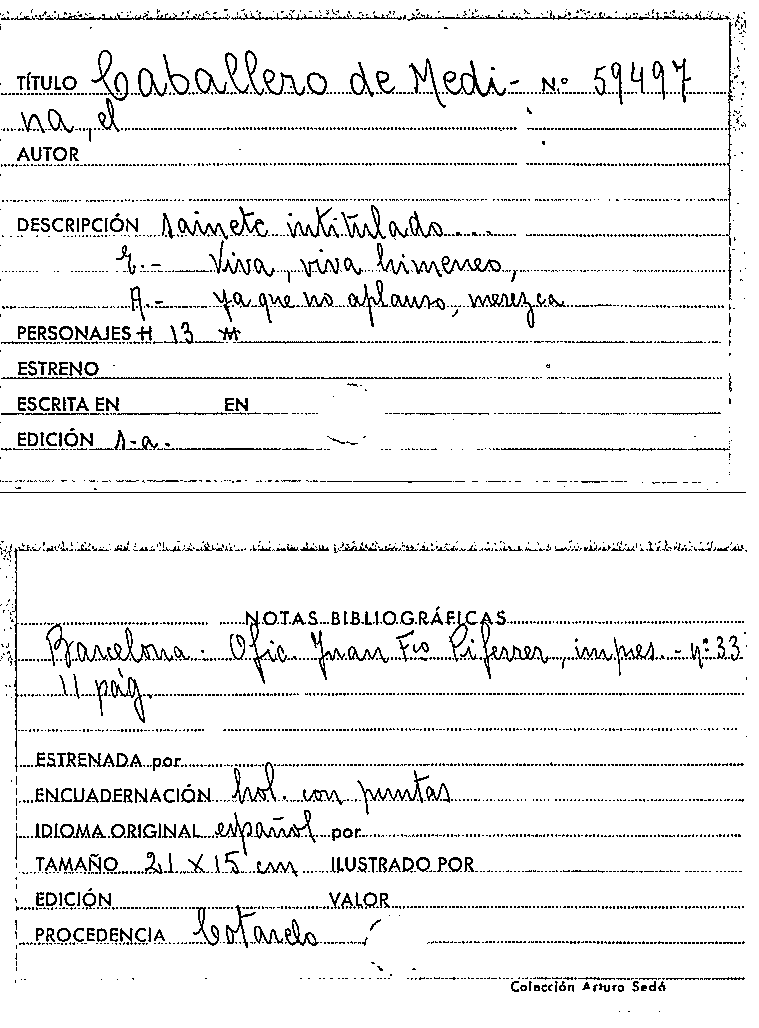 TÍTULO Caballero de Medi- N.º 59497
na, el
AUTOR
DESCRIPCIÓN sainete intitulado...
E.- Viva, viva himeneo,
A.- ya que no aplauso, merezca
PERSONAJES H 13 M
ESTRENO
ESCRITA EN EN
EDICIÓN s.a.
NOTAS BIBLIOGRÁFICAS
Barcelona. Ofic. Juan Fco Piferrer, impres. - nº 33
11 pág.
ESTRENADA por
ENCUADERNACIÓN hol. con puntas
IDIOMA ORIGINAL español por
TAMAÑO 21 X 15 cm ILUSTRADO POR
EDICIÓN VALOR
PROCEDENCIA Cotarelo
Colección Arturo Sedó